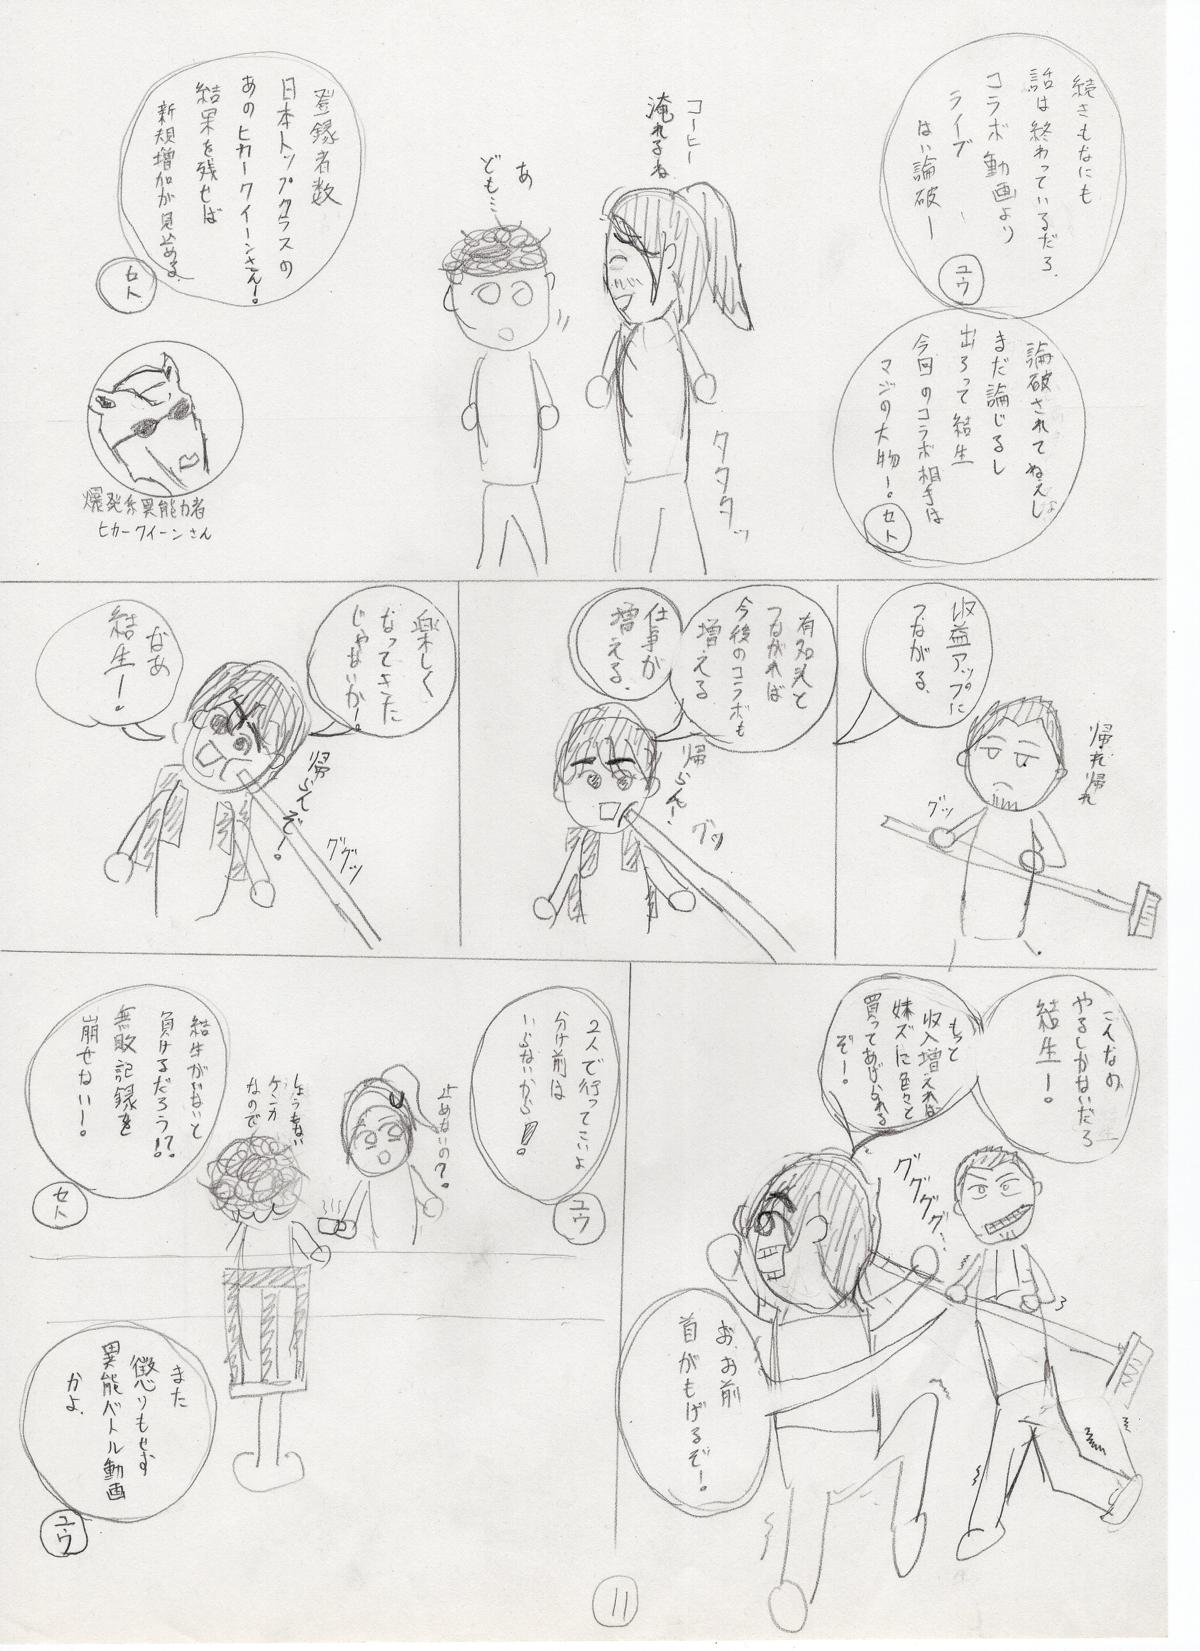 続きもなにも
話は終わっているだろ、
コラボ動画より
ライブ、
はい論破ー
ユウ
論破されてねぇし
まだ論じるし
出ろって結生
今回のコラボ相手は
マジの大物ー。
セト
コーヒー
淹れるね
タタタタッ
あ
ども…
登録者数
日本トップクラスの
あのヒカークイーンさん!
結果を残せば
新規増加が見込める
セト
爆発系異能力者
ヒカークイーンさん
収益アップに
つながる、
帰れ帰れ
グッ
有名人と
つながれば
今後のコラボも
増える
仕事が
増える、
帰らん!
グッ
楽しく
なってきた
じゃないか!
なあ
結生!
帰らんぞ!
ググッ
こんなの
やるしかないだろ
結生ー!
もっと
収入増えれば
妹ズに色々と
買ってあげられる
ぞー!
ググググ…
お、お前
首がもげるぞ!
2人で行ってこいよ
分け前は
いらないから!
ユウ
止めないの?
しょうもない
ケンカ
なので
結生がいないと
負けるだろう!?
無敗記録を
崩せないー!
セト
また
懲りもせず
異能バトル動画
かよ、
ユウ
11